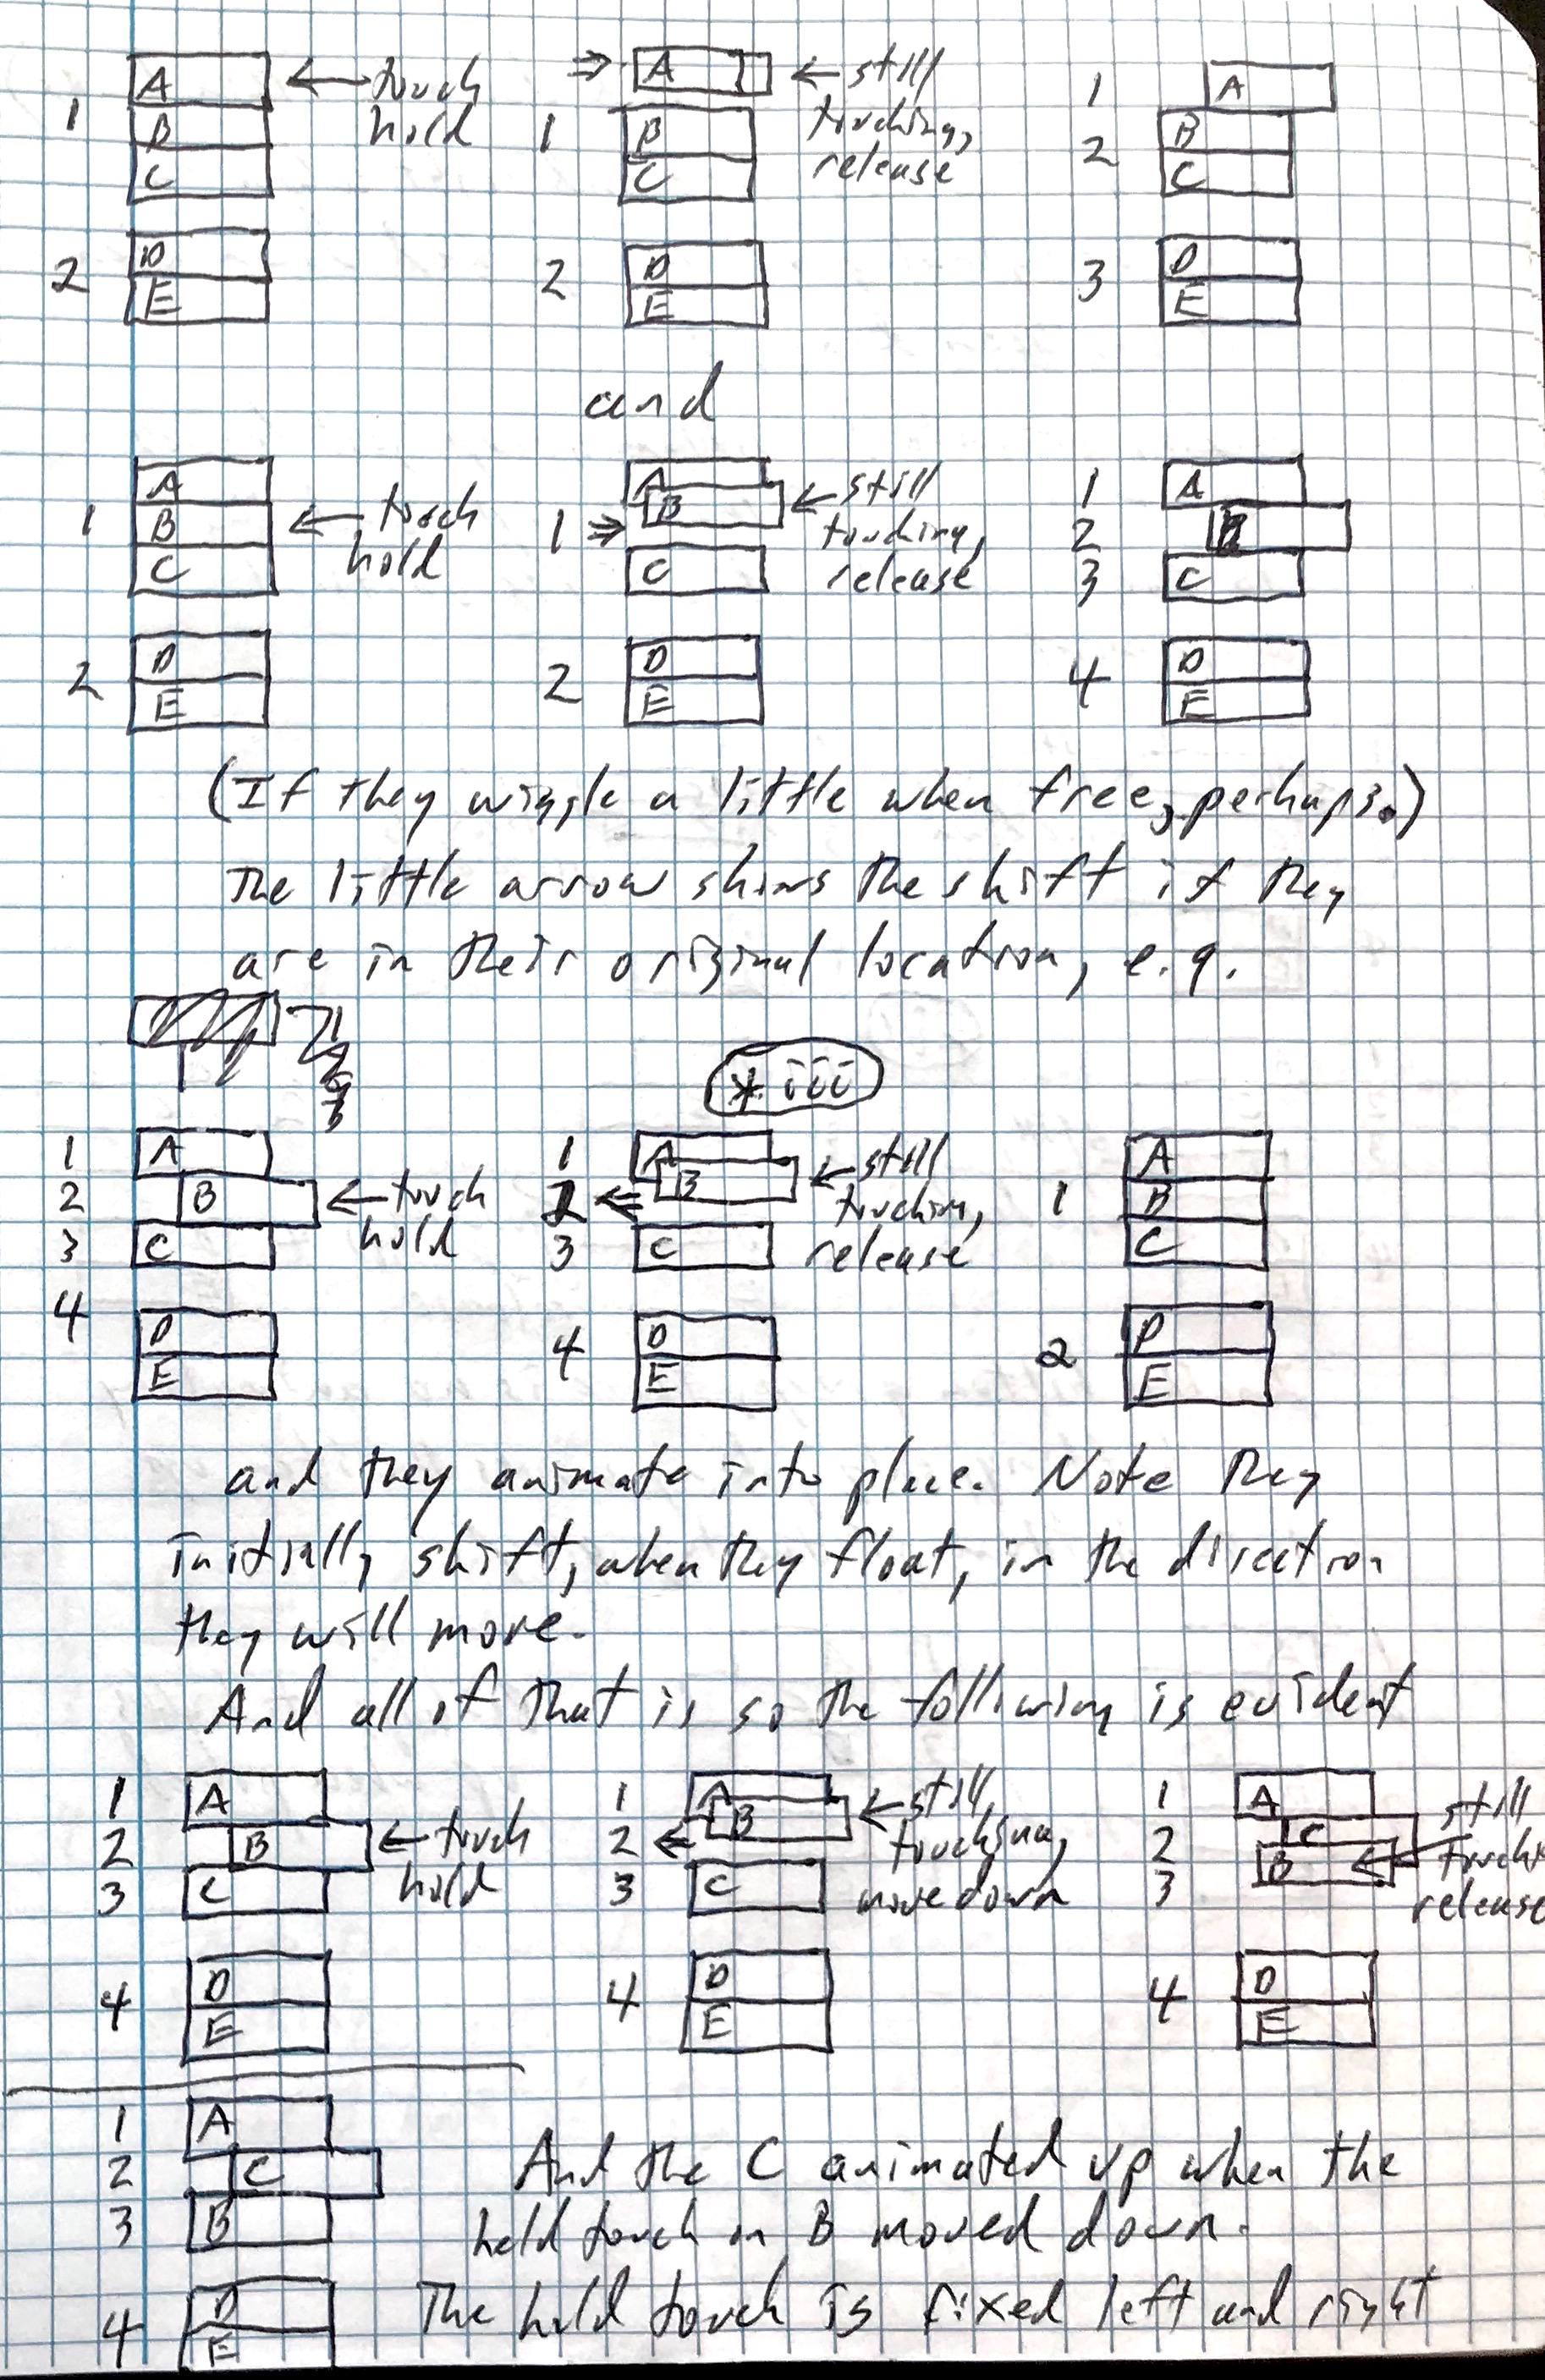 A ← touch hold
1 B
C
2 D
E
⇒ A ← still touching, release
1 B
C
2 D
E
1 A
2 B
C
3 D
E
and
A
1 B ← touch hold
C
2 D
E
A
1 ⇒ B ← still touching, release
C
2 D
E
1 A
2 B
3 C
4 D
E
(If they wiggle a little when free, perhaps.)
The little arrow shows the shift if they
are in their original location, e.g.
* iii
1 A
2 B ← touch hold
3 C
4 D
E
1 A
2 ⇐ B ← still touching, release
3 C
4 D
E
A
1 B
C
2 D
E
and they animate into place. Note they
initially shift, when they float, in the direction
they will move.
And all of that is so the following is evident
1 A
2 B ← touch hold
3 C
4 D
E
1 A
2 ← B ← still touching, move down
3 C
4 D
E
1 A
2 C
3 B ← still release
4 D
E
1 A
2 C
3 B
4 D
E
And the C animated up when the
held touch on B moved down.
The hold touch is fixed left and right